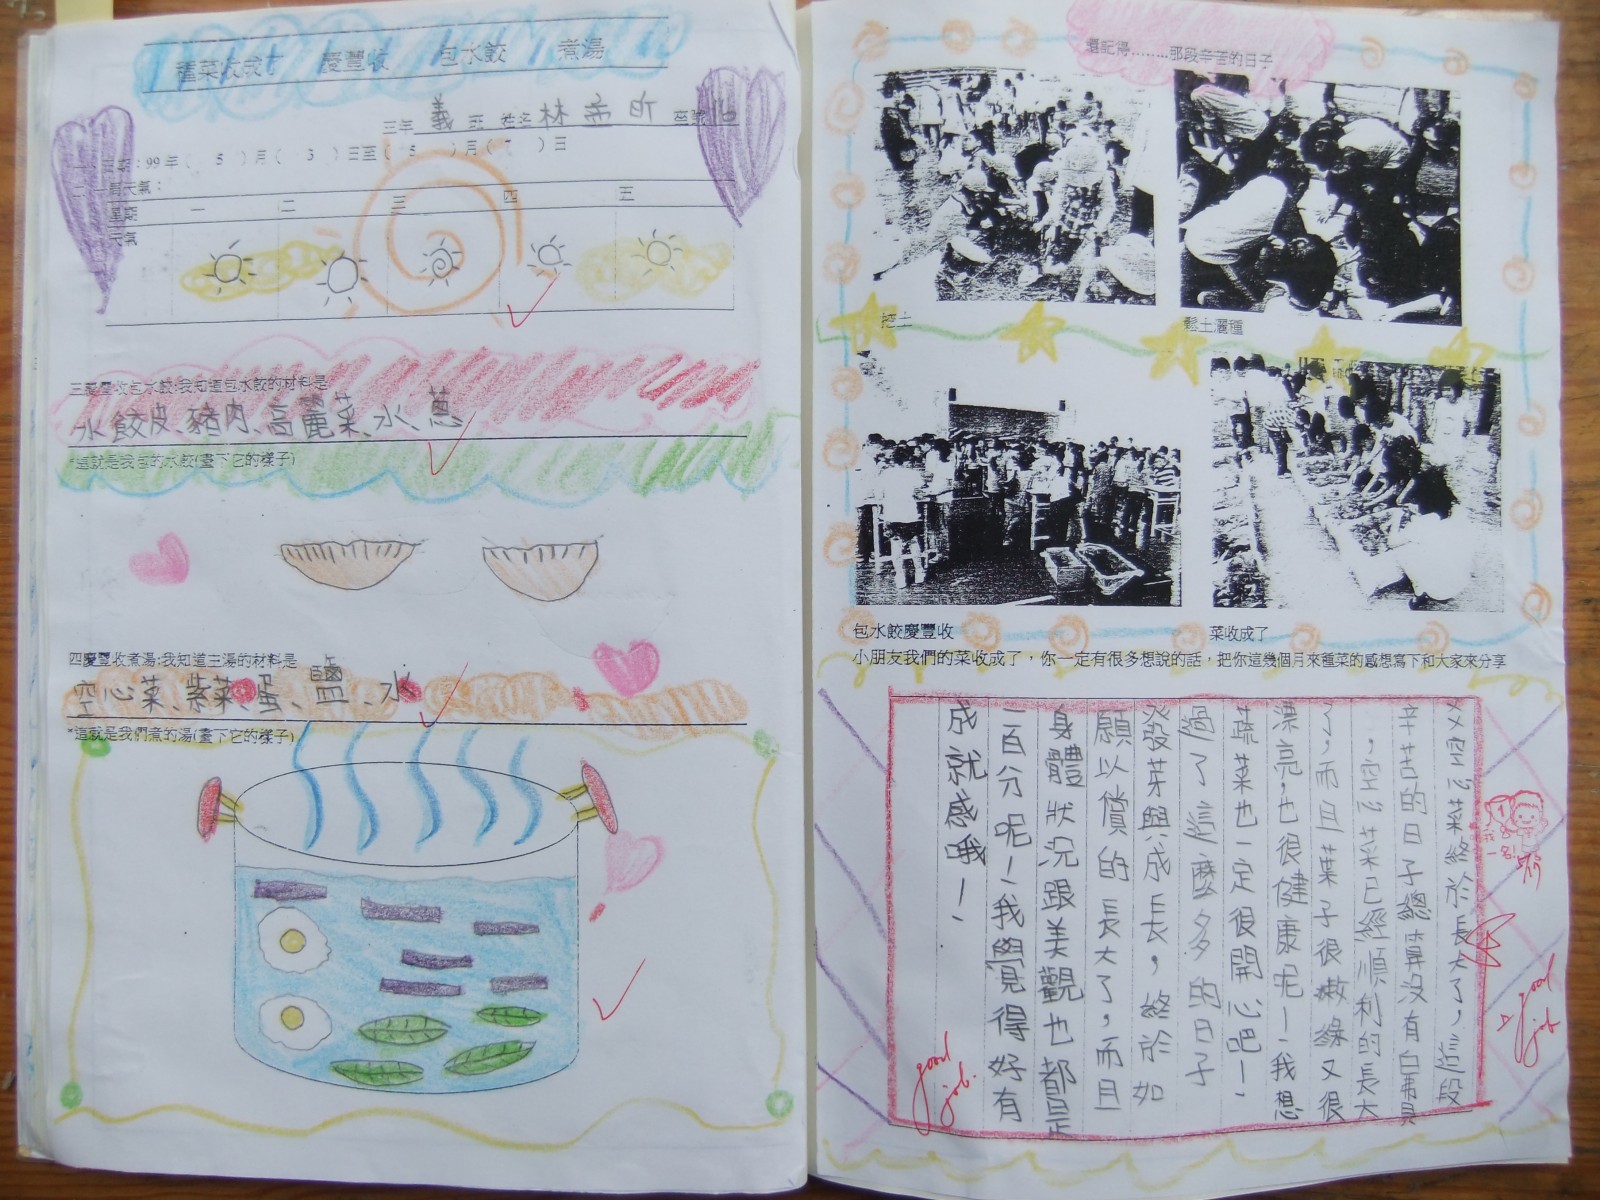 種菜收成了 慶豐收 包水餃 煮湯
三年 義 班 姓名 林 町 座號
二、一周天氣：
星期 一 二 三 四 五
天氣
三慶豐收包水餃:我知道包水餃的材料是
水餃皮、豬肉、高麗菜、水、蔥
*這就是我包的水餃(畫下它的樣子)
四慶豐收煮湯:我知道主湯的材料是
空心菜、紫菜、蛋、鹽、水
*這就是我們煮的湯(畫下它的樣子)
還記得………那段辛苦的日子
挖土
鬆土灑種
包水餃慶豐收
菜收成了
小朋友我們的菜收成了，你一定有很多想說的話，把你這幾個月來種菜的感想寫下和大家來分享
空心菜終於長大了，這段
辛苦的日子總算沒有白費
，空心菜已經順利的長大
了，而且葉子很嫩綠又很
漂亮，也很健康呢！我想
蔬菜也一定很開心吧！
過了這麼多的日子
發芽與成長，終於如
願以償的長大了，而且
身體狀況跟美觀也都是
一百分呢！我覺得好有
成就感哦！
good
job
good
job.